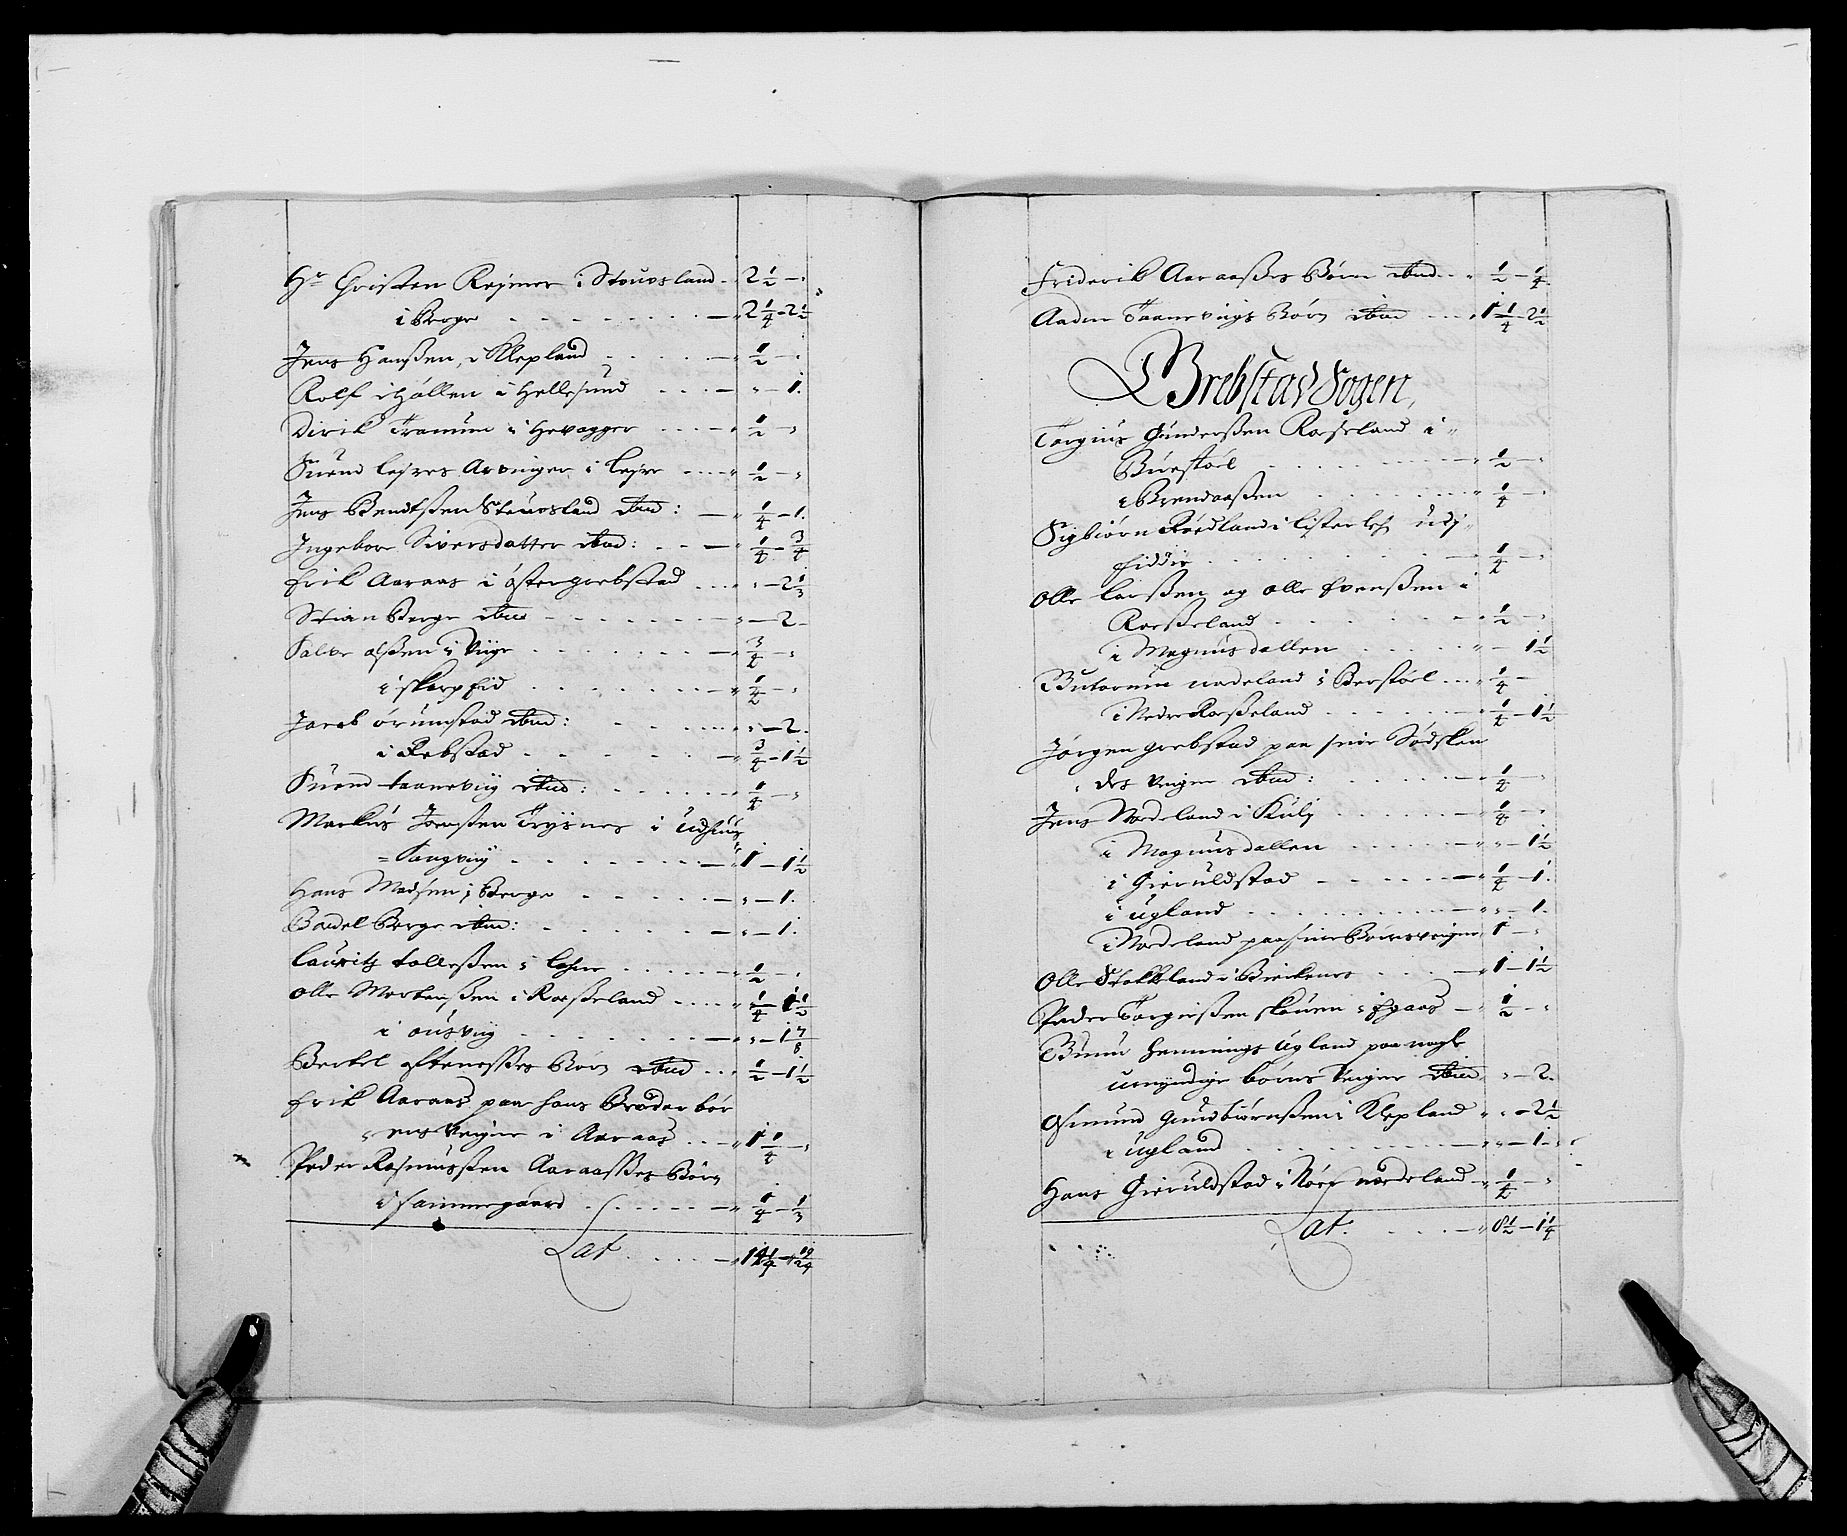 Hr Christen Rejmer i Stousland - 2 1/2 - "
i Berge - - - 2 1/4 - 2 1/2
Jens Hanssen, i Klepland - - - 1/2 - "
Rolf i Hellesund - - - " - 1.
Dirik Tranum i Hevagger - - - 1/2 - "
Suend Arvinger i - - - 1/2 - "
Jens Bendtssen Stousland ibid: - 1/4 - 1.
Ingebor Siversdatter ibid: - - 1/4 - 3/4
Erik Aaraas i østergrebstad - - - " - 2 1/3
Stian Berge ibid - - - " - 2 -
Salve olssen i Viige - - - 3/4 - "
i skarpeid - - - 1/4 - "
Jacob ørunstad ibid: - - - " - 2.
i Rebstad - - - 3/4 - 1 1/2
Suend taanevig ibid: - - - 1/4 - "
Markus Jenssen Trysnes i
Langvig - - - 1 - 1 1/2
Hans Madsen i Berge - - - " - 1.
Bodel Berge ibid: - - - " - 1.
Lauritz tollessen i - - - 1/2 - "
Olle Mortenssen i Rosseland - - - 1/4 - 1 1/2
i ousvig - - - " - 1 7/8
Bertel Børn ibid - - 1/2 - 1 1/2
Erik Aaraas paa hans Broder bør
ens vegne i Aaraas - - - 1 1/4 - "
Peder Rasmussen Aaraasses Børn
i sammegaard - - - 1/4 - 1/3
Lat - - - 14 1/4 - 19/24
Friderik Aaraasses Børn ibid - - 1/2 - 1/4
Aadne Taanevigs Børn ibid - - - 1 1/4 - 2 1/2
Grebstad Sogen,
Torgius Gunderssen Rosseland i
Burestøel - - - 1/2 - "
i Brendaassen - - - 1/4 - "
Sigbiørn Roedland i Lister
- - - 1/4 - "
Olle larssen og olle Svenssen i
Rosseland - - - 1/2 - "
i Magnusdallen - - - " - 1 1/2
nodeland i Berstøel - - - 1/4 -
i Nedre Rosseland - - - 1/4 - 1 1/2
Jørgen grebstad paa sine Sødsken
des vegne ibid: - - - 1/4 - "
Jens Nodeland i Kulj - - - 1/4 - "
i Magnusdallen - - - " - 1 1/2
i Gieruldstad - - - 1/4 - 1.
i ugland - - - " - 1.
i Nodeland paa sine Børns vegne 1 - "
Olle Stokkeland i Birkenes - - - 1 - 1 1/2
Peder Torgiussen skouen i - 1/2 - "
Hennings Ugland paa nogle
umyndige børns vegne ibid " - 2.
Osmund Gundbiørnssen i Klepland " - 2 1/2
i ugland - - - " - 1 -
Hans Gieruldstad i Nore nodeland - 1/4 - "
Lat. - - - 8 1/2 - 1 1/4